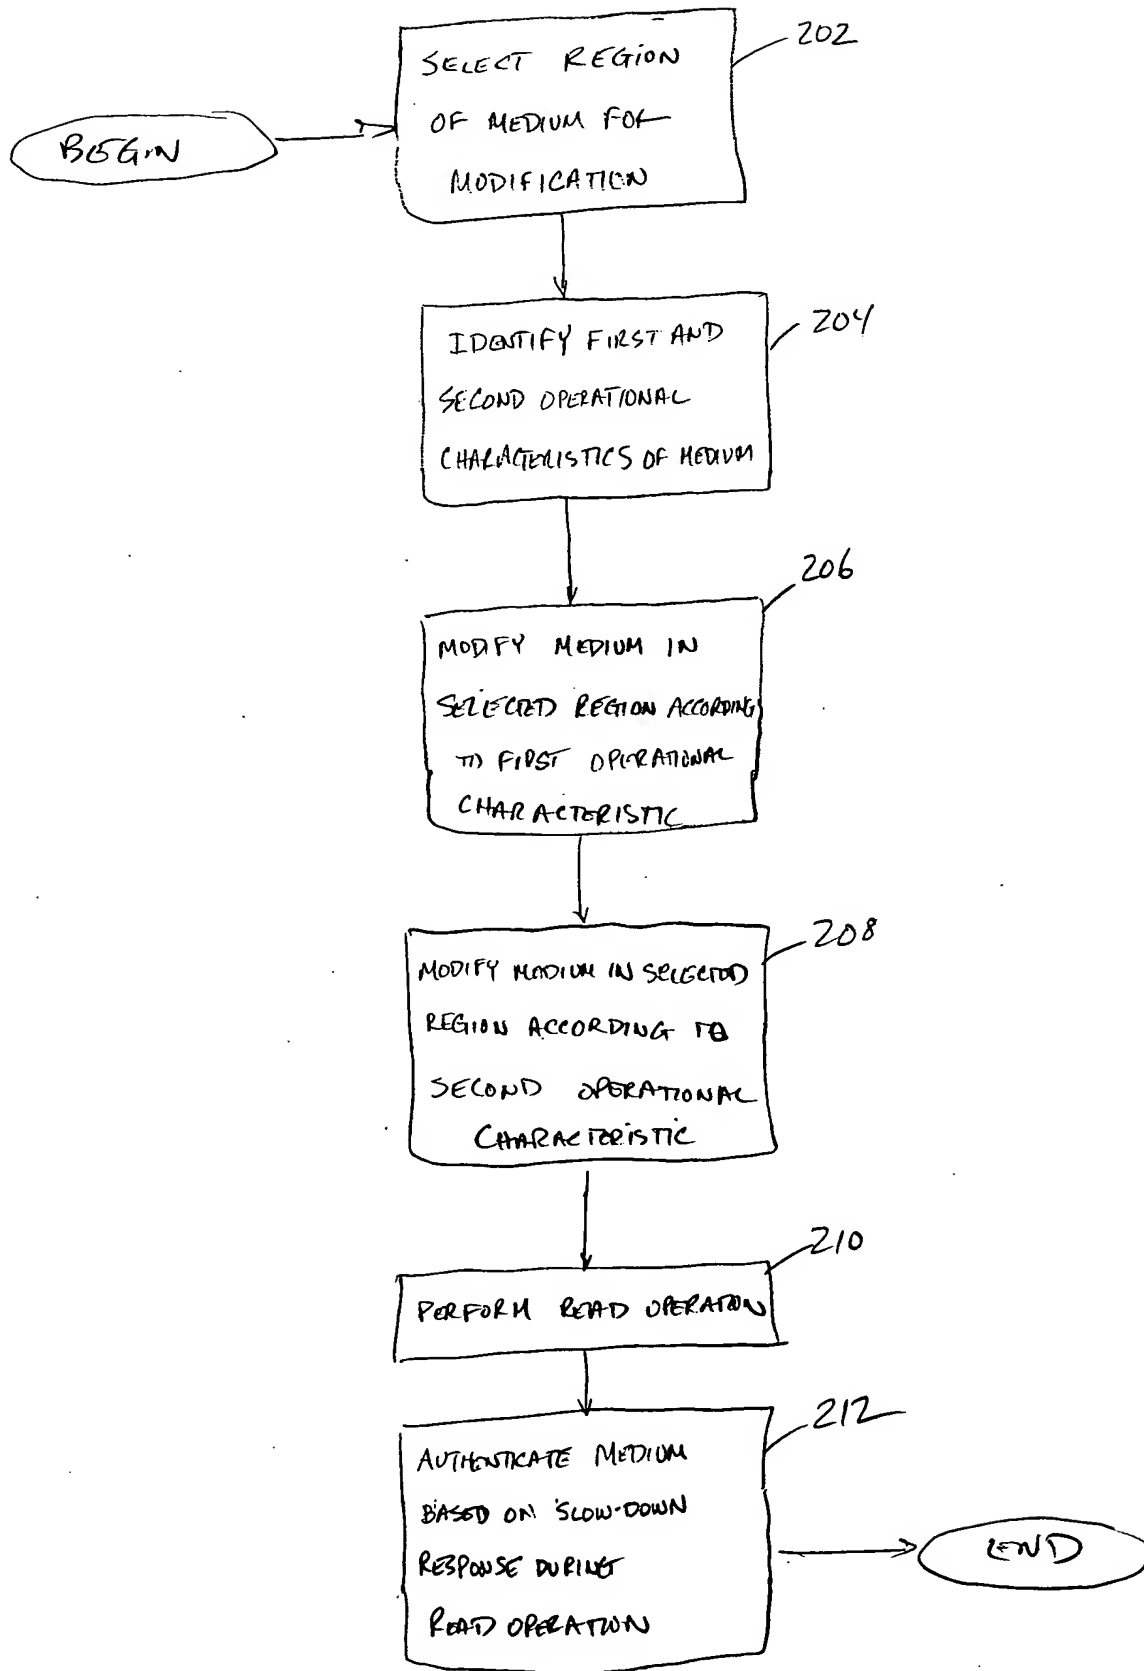 BEGIN
202
SELECT REGION
OF MEDIUM FOR
MODIFICATION
204
IDENTIFY FIRST AND
SECOND OPERATIONAL
CHARACTERISTICS OF MEDIUM
206
MODIFY MEDIUM IN
SELECTED REGION ACCORDING
TO FIRST OPERATIONAL
CHARACTERISTIC
208
MODIFY MEDIUM IN SELECTED
REGION ACCORDING TO
SECOND OPERATIONAL
CHARACTERISTIC
210
PERFORM READ OPERATION
212
AUTHENTICATE MEDIUM
BASED ON SLOW-DOWN
RESPONSE DURING
READ OPERATION
END